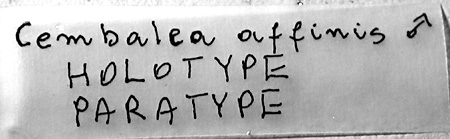 Cembalea affinis ♂
HOLOTYPE
PARATYPE